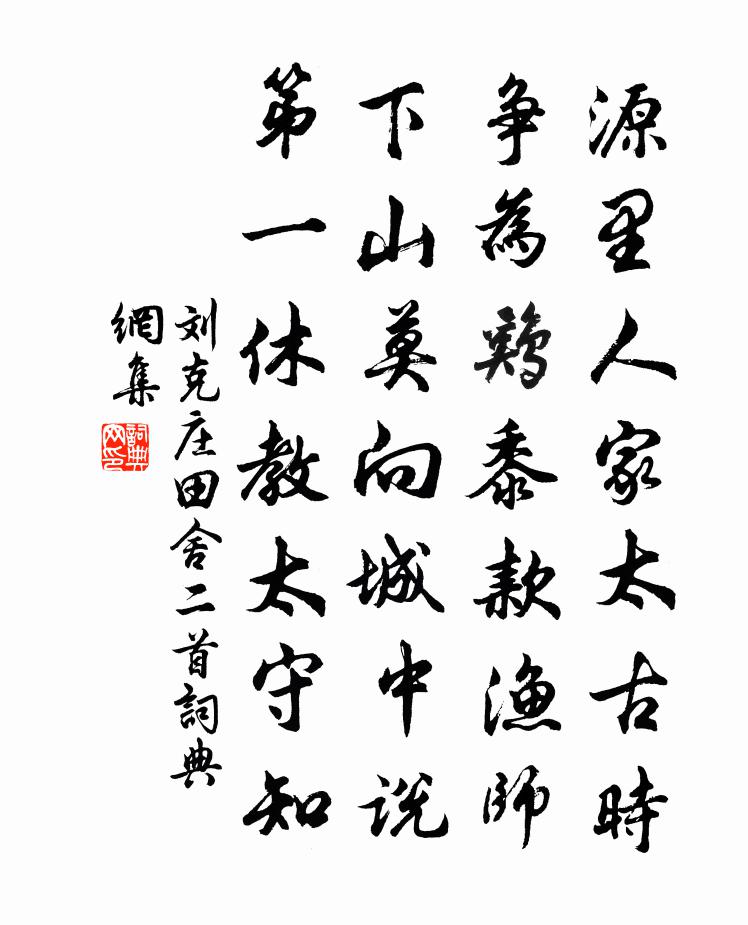 源里人家太古時
争為鷄黍款漁師
下山莫向城中説
第一休教太守知
刘克庄田舍二首詞典
網集
詞典
网印